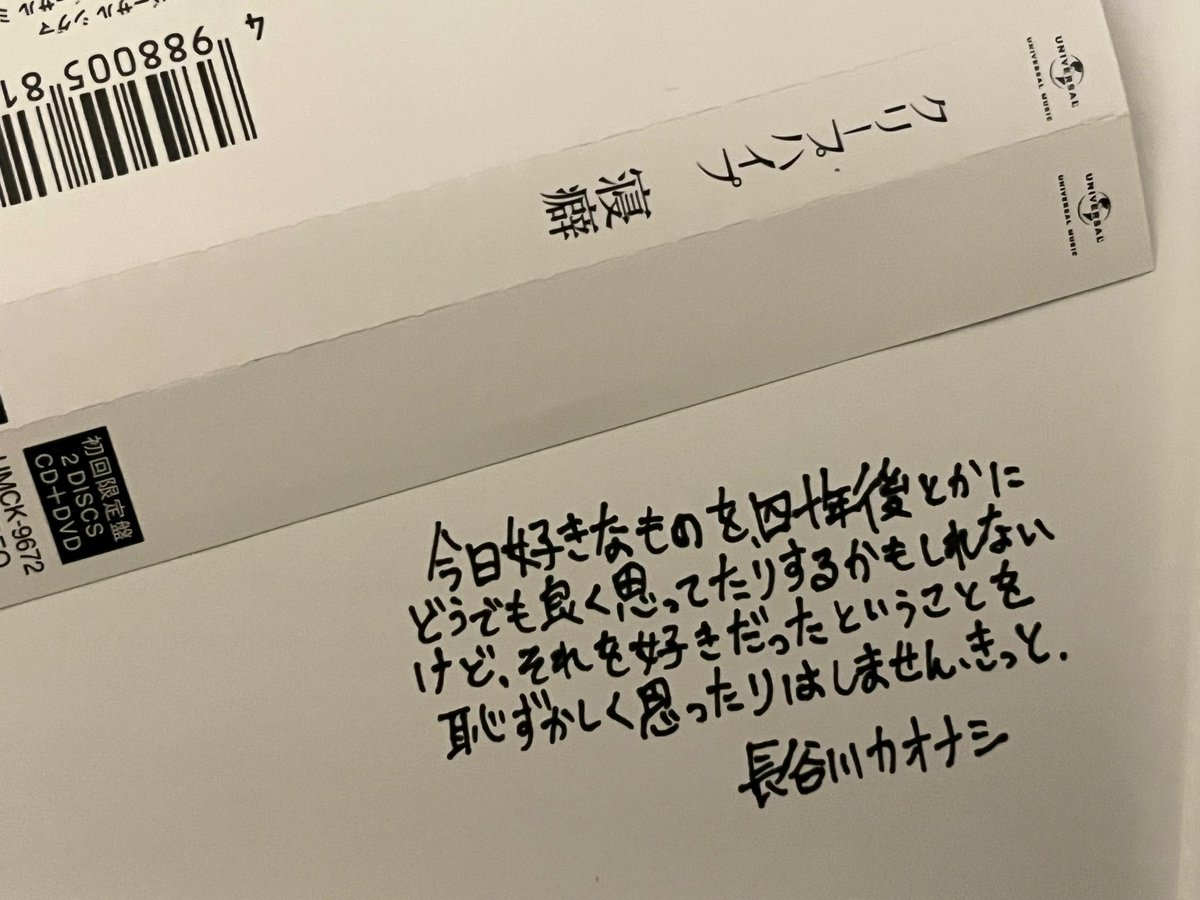 4 988005 81
クリープハイプ
寝癖
UNIVERSAL
UNIVERSAL MUSIC
UNIVERSAL
UNIVERSAL MUSIC
初回限定盤
2 DISCS
CD+DVD
UMCK-9672
今日好きなものを、四十年後とかに
どうでも良く思ってたりするかもしれない
けど、それを好きだったということを
恥ずかしく思ったりはしません、きっと.
長谷川カオナシ